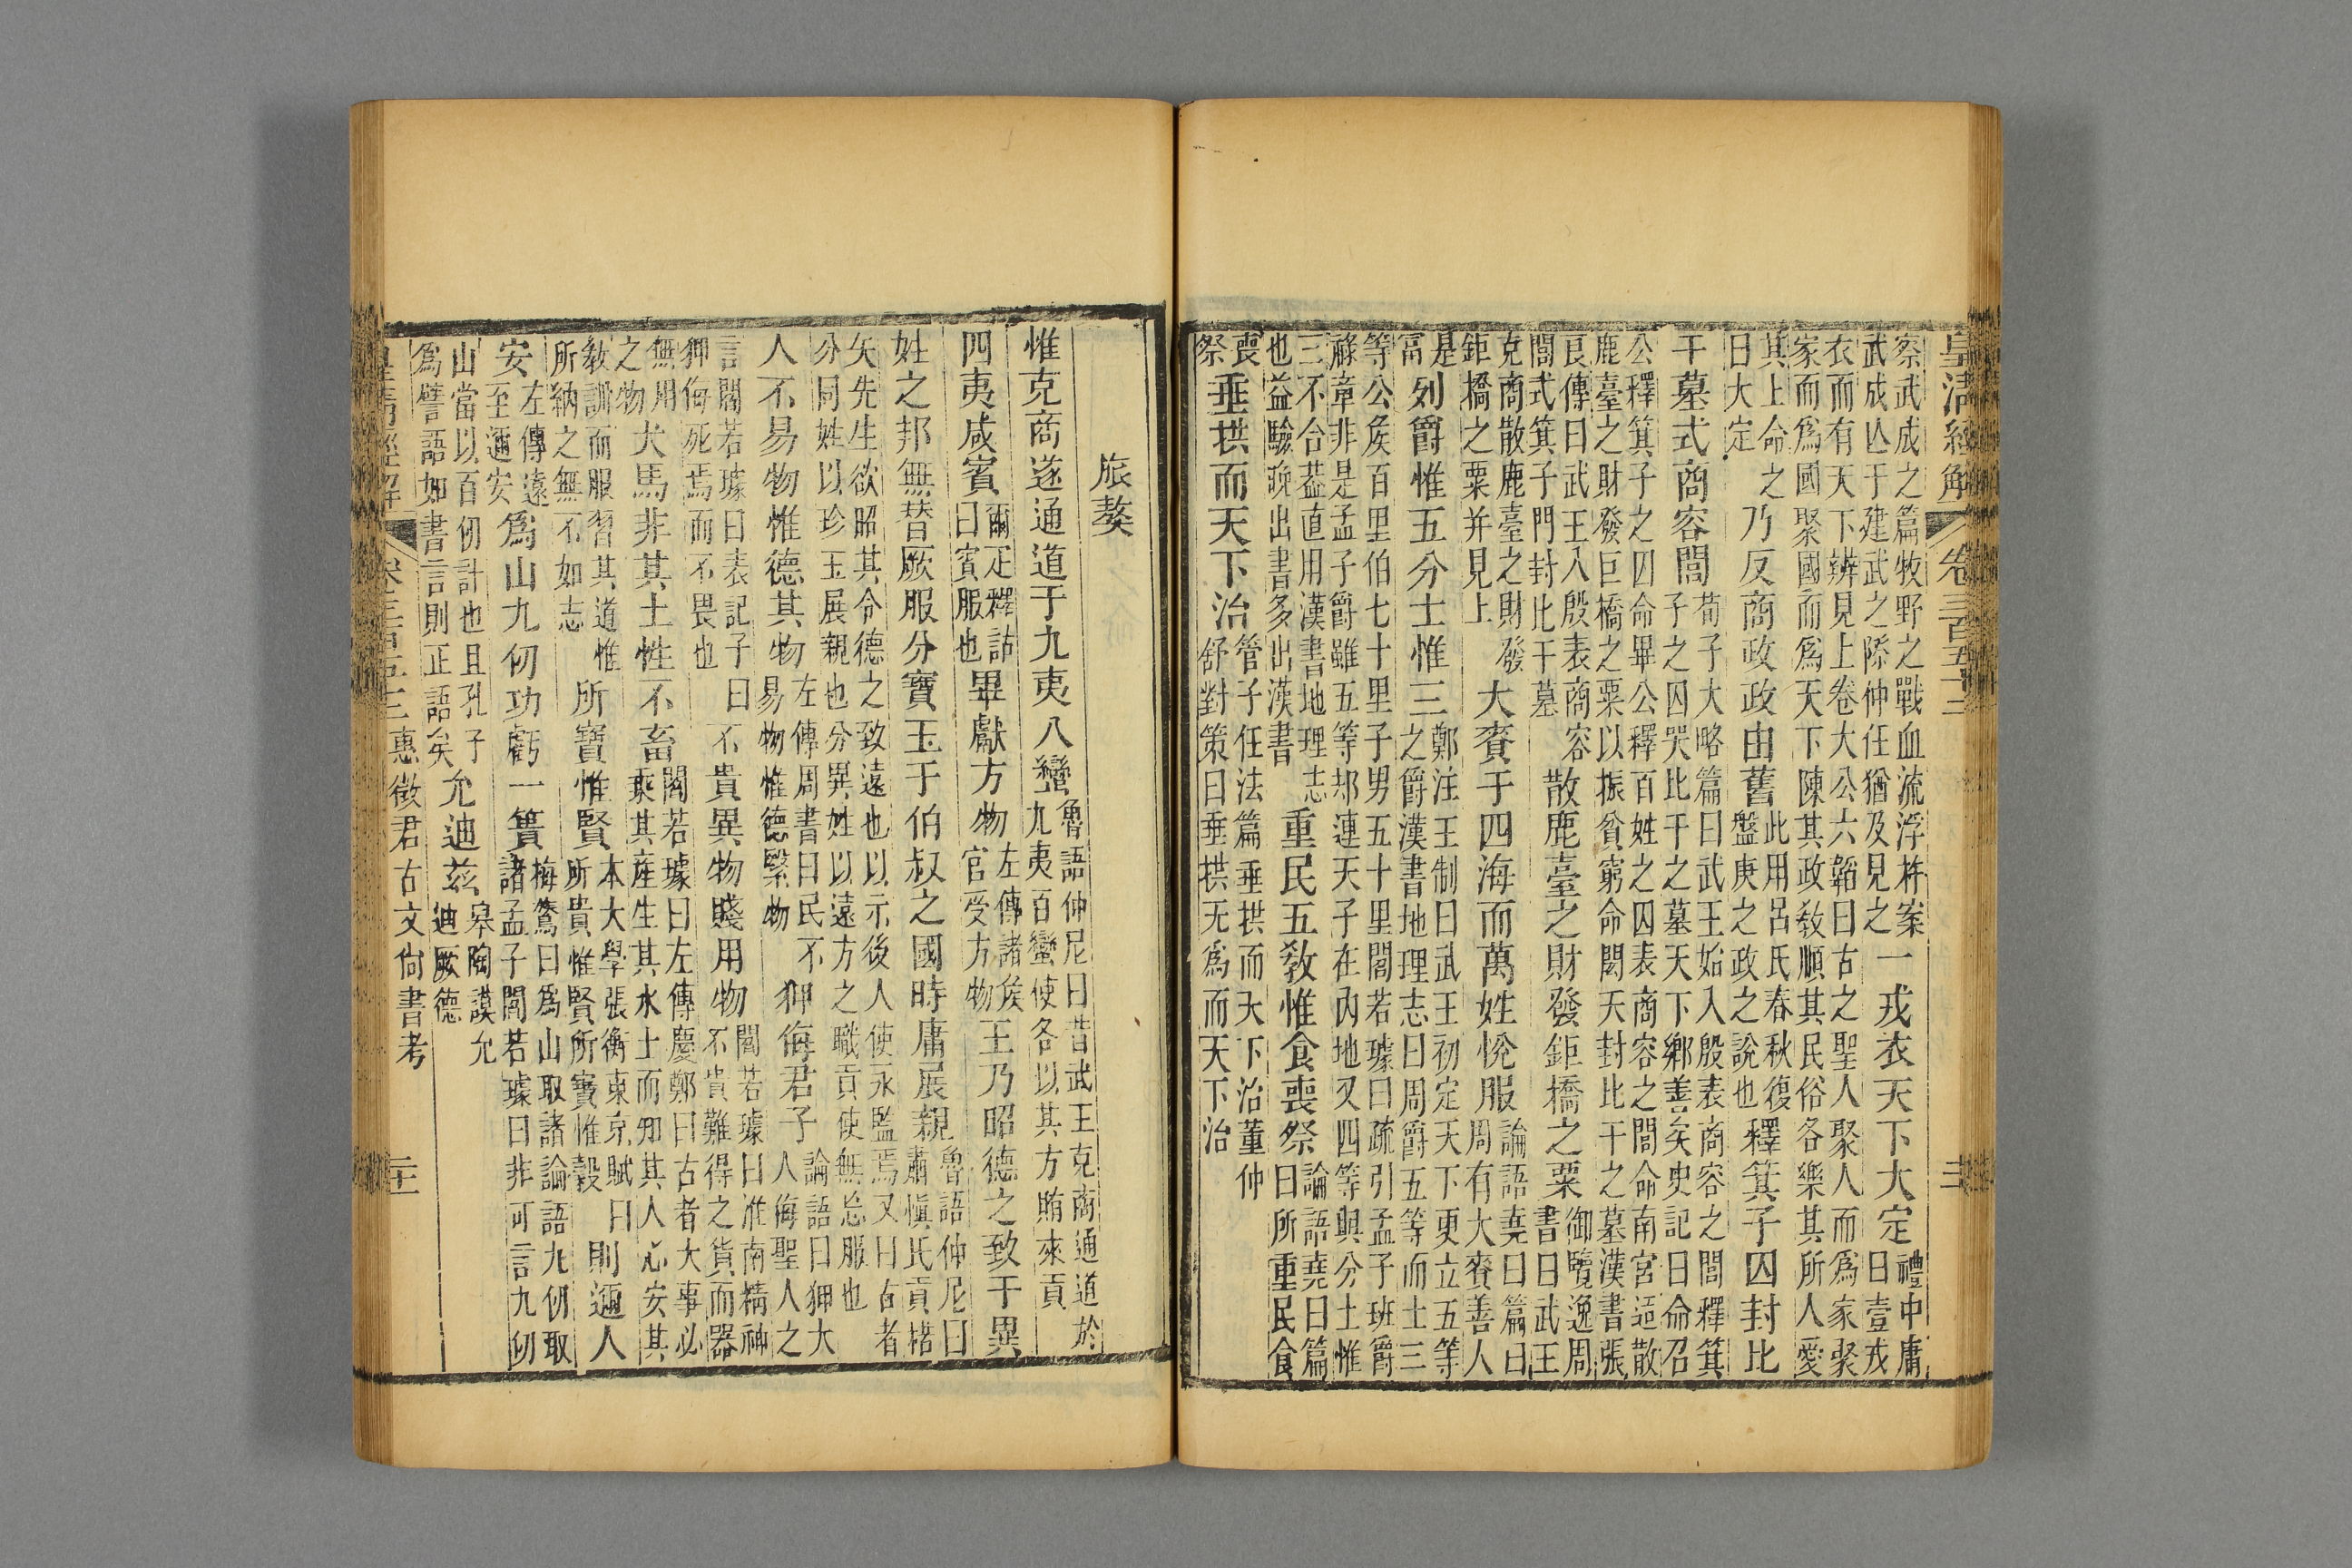 皇清經解 卷三百五十二 二十
察武成之篇牧野之戰血流浮杵案
武成亾于建武之際仲任猶及見之
一戎衣天下大定
禮中庸
曰壹戎
衣而有天下辨見上卷大公六韜曰古之聖人聚人而爲家聚
家而爲國聚國而爲天下陳其政敎順其民俗各樂其所人愛
其上命之
曰大定
乃反商政政由舊
此用呂氏春秋復
盤庚之政之說也
釋箕子囚封比
干墓式商容閭
荀子大略篇曰武王始入殷表商容之閭釋箕
子之囚哭比干之墓天下鄉善矣史記曰命召
公釋箕子之囚命畢公釋百姓之囚表商容之閭命南宮适散
鹿臺之財發巨橋之粟以振貧窮命閎夭封比干之墓漢書張
良傳曰武王入殷表商容
閭式箕子門封比干墓
散鹿臺之財發鉅橋之粟
御覽逸周
書曰武王
克商散鹿臺之財發
鉅橋之粟并見上
大賚于四海而萬姓悅服
論語堯曰篇曰
周有大賚善人
是
富
列爵惟五分土惟三
鄭注王制曰武王初定天下更立五等
之爵漢書地理志曰周爵五等而土三
等公矦百里伯七十里子男五十里閻若璩曰疏引孟子班爵
祿章非是孟子爵雖五等却連天子在內地又四等與分土惟
三不合葢直用漢書地理志
也益驗晚出書多出漢書
重民五敎惟食喪祭
論語堯曰篇
曰所重民食
喪
祭
垂拱而天下治
管子任法篇垂拱而天下治董仲
舒對策曰垂拱无爲而天下治
旅獒
惟克商遂通道于九夷八蠻
魯語仲尼曰昔武王克商通道於
九夷百蠻使各以其方賄來貢
四夷咸賓
爾疋釋詁
曰賓服也
畢獻方物
左傳諸矦
官受方物
王乃昭德之致于異
姓之邦無替厥服分寶玉于伯叔之國時庸展親
魯語仲尼曰
肅慎氏貢楛
矢先生欲昭其令德之致遠也以示後人使永監焉又曰古者
分同姓以珍玉展親也分異姓以遠方之職貢使無忘服也
人不易物惟德其物
左傳周書曰民不
易物惟德繄物
狎侮君子
論語曰狎大
人侮聖人之
言閻若璩曰表記子曰
狎侮死焉而不畏也
不貴異物賤用物
閻若璩曰淮南精神
不貴難得之貨而器
無用
之物
犬馬非其土性不畜
閻若璩曰左傳慶鄭曰古者大事必
乘其產生其水土而知其人心安其
敎訓而服習其道惟
所納之無不如志
所寶惟賢
本大學張衡東京賦曰
所貴惟賢所寶惟穀
則邇人
安
左傳遠
至邇安
爲山九仞功虧一簣
梅鷟曰爲山取諸論語九仞取
諸孟子閻若璩曰非可言九仞
山當以百仞計也且孔子
爲譬語如書言則正語矣
允迪茲
皋陶謨允
迪厥德
皇清經解 卷三百五十二 惠徵君古文尙書考 二十一